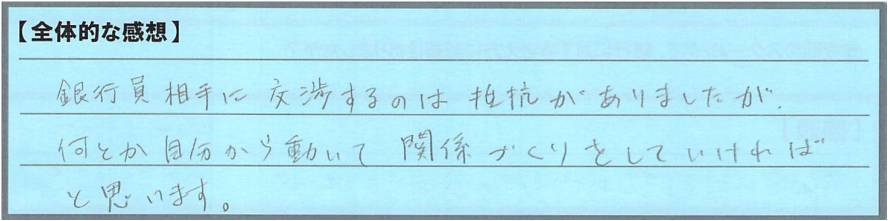 【全体的な感想】
銀行員相手に交渉するのは抵抗がありましたが、
何とか自分から動いて関係づくりをしていければ
と思います。